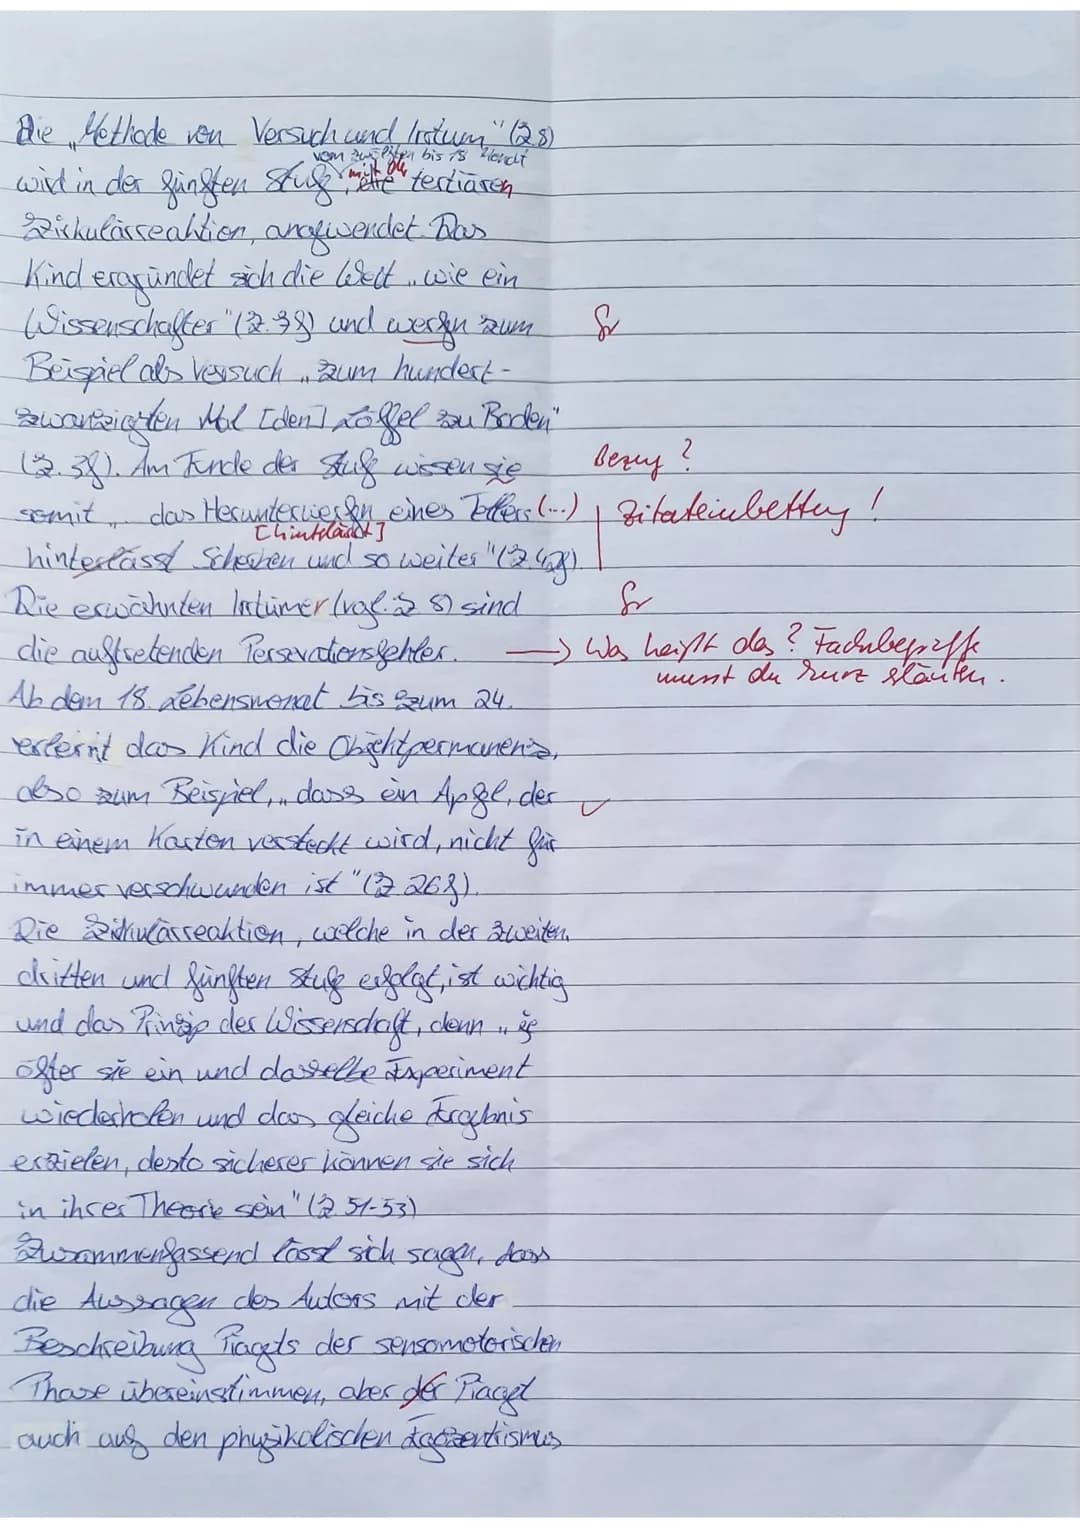 Die „Methode von Versuch und Irrtum" (Z. 8)
vom zwölften bis 18 Monat
wird in der fünften Stufe, mit der tertiären
Zirkulärreaktion, angewendet. Das
Kind ergründet sich die Welt „wie ein
Wissenschafter" (Z. 38) und werfen zum Gr
Beispiel als Versuch „zum hundert-
zwanzigsten Mal [den] Löffel zu Boden"
(Z. 3f). Am Ende der Stufe wissen sie Bezug?
somit „ das Herunterwerfen eines Tellers (...) Zitateinbettung!
hinterlässt Scherben und so weiter" (Z. 42f).
Die erwähnten Irrtümer (vgl. Z 8) sind Gr
die auftretenden Perservationsfehler. → Was heißt das? Fachbegriffe
musst du kurz erläutern.
Ab dem 18. Lebensmonat bis zum 24.
erlernt das Kind die Objektpermanenz,
also zum Beispiel, „dass ein Apfel, der ✓
in einem Kasten versteckt wird, nicht für
immer verschwunden ist" (Z. 26f).
Die Zirkulärreaktion, welche in der zweiten,
dritten und fünften Stufe erfolgt, ist wichtig
und das Prinzip der Wissenschaft, denn „je
öfter sie ein und dasselbe Experiment
wiederholen und das gleiche Ergebnis
erzielen, desto sicherer können sie sich
in ihrer Theorie sein" (Z. 51-53)
Zusammenfassend lässt sich sagen, dass
die Aussagen des Autors mit der
Beschreibung Piagets der sensomotorischen
Phase übereinstimmen, aber der Piaget
auch auf den physikalischen Egozentrismus